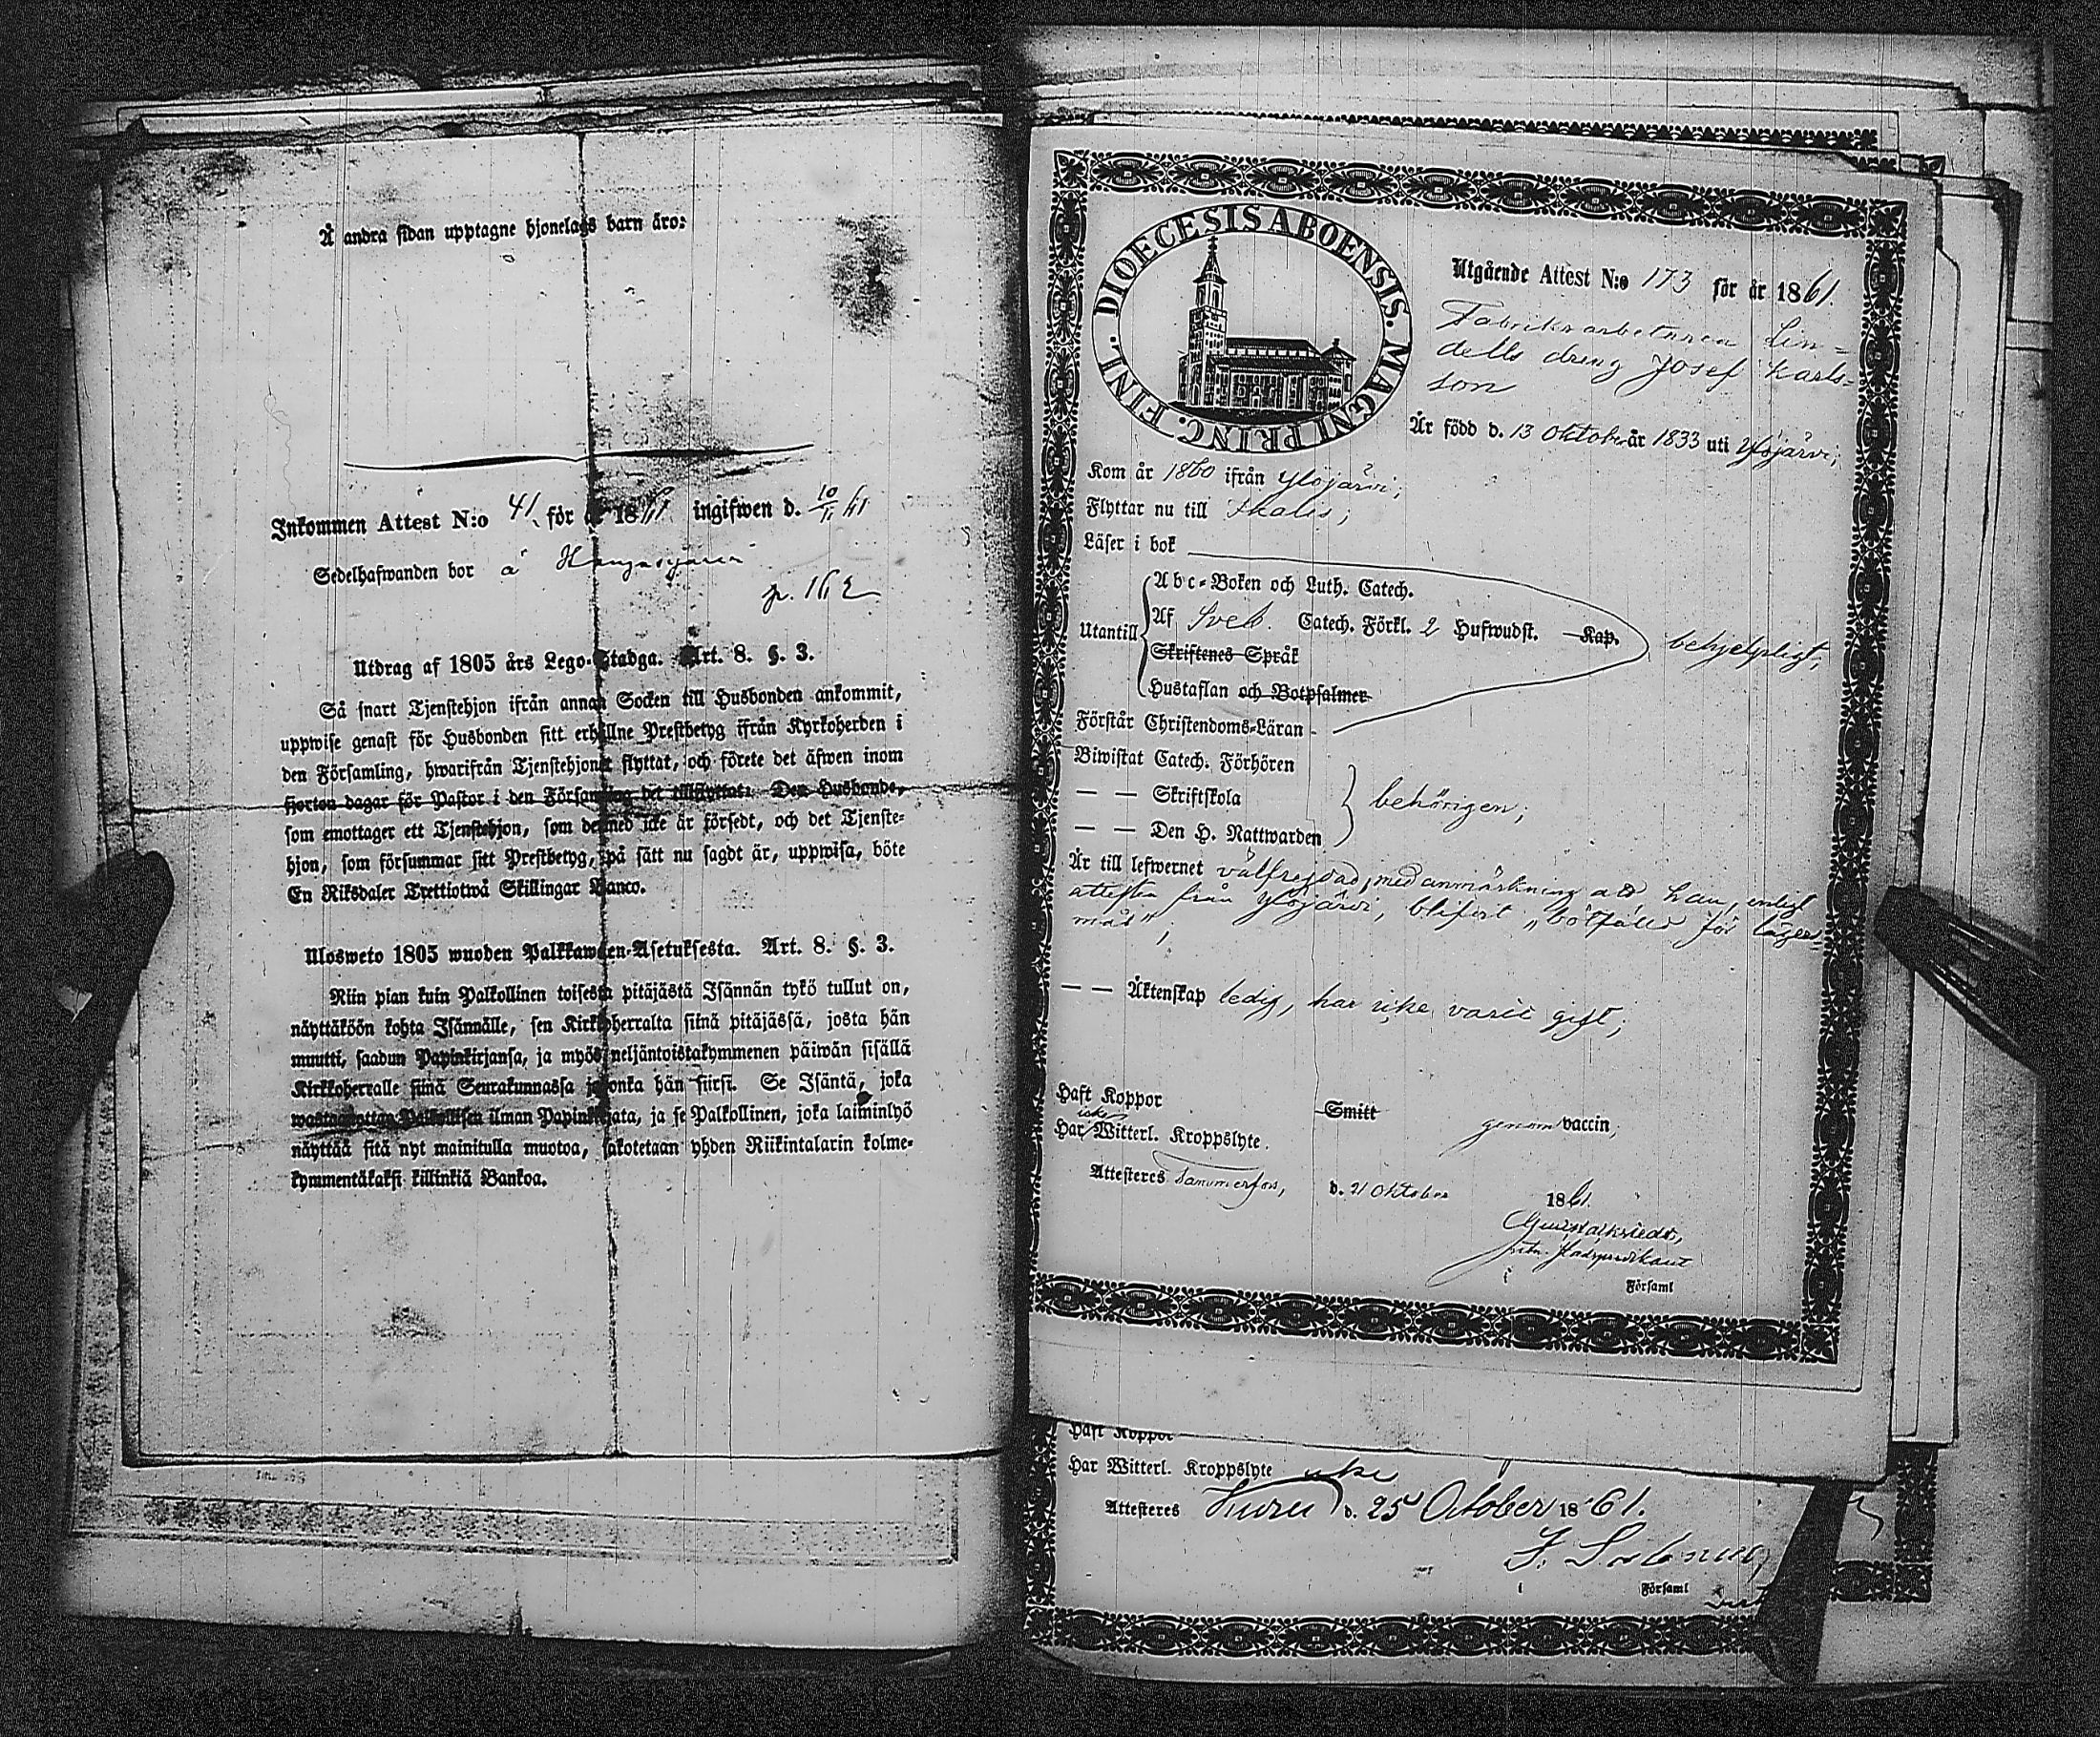 Å andra sidan upptagne hjonelags barn äro:
Inkommen Attest N:o 41 för år 1861 ingifwen d. 10/11 61
Sedelhafwanden bor å
p. 162
Utdrag af 1805 års Lego-Stadga. Art. 8. §. 3.
Så snart Tjenstehjon ifrån annan Socken till Husbonden ankommit,
uppwise genast för Husbonden sitt erhållne Prestbetyg ifrån Kyrkoherden i
den Församling, hwarifrån Tjenstehjonet flyttat, och förete det äfwen inom
fjorton dagar för Pastor i den Församling det tillflyttat. Den Husbonde,
som emottager ett Tjenstehjon, som dermed icke är försedt, och det Tjenste-
hjon, som försummar sitt Prestbetyg, på sätt nu sagdt är, uppwisa, böte
En Riksdaler Trettiotwå Skillingar Banco.
Ulosweto 1805 wuoden Palkkawäen-Asetuksesta. Art. 8. §. 3.
Niin pian kuin Palkollinen toisesta pitäjästä Isännän tykö tullut on,
näyttäköön kohta Isännälle, sen Kirkkoherralta siinä pitäjässä, josta hän
muutti, saadun Papinkirjansa, ja myös neljäntoistakymmenen päiwän sisällä
Kirkkoherralle siinä Seurakunnassa jahonka hän siirsi. Se Isäntä, joka
wastaanottaa Palkollisen ilman Papinkirjata, ja se Palkollinen, joka laiminlyö
näyttää sitä nyt mainitulla muotoa, sakotetaan yhden Riikintalarin kolme-
kymmentäkaksi killinkiä Bankoa.
DIOECESIS ABOENSIS. MAGNI PRINC. FINL.
Utgående Attest N:o 173 för år 1861.
Fabriksarbetaren Lin-
dells dreng Josef Karls-
son
Är född d. 13 Oktober år 1833 uti Ylöjärvi;
Kom år 1860 ifrån Ylöjärvi;
Flyttar nu till Ikalis;
Läser i bok
Abc-Boken och Luth. Catech.
Utantill Af Sveb. Catech. Förkl. 2 Hufwudst. Kap. behjelpligt;
Skriftenes Språk
Hustaflan och Botpsalmer
Förstår Christendoms-Läran
Biwistat Catech. Förhören
— — Skriftskola behörigen;
— — Den H. Nattwarden
Är till lefwernet välfrejdad, med anmärkning att han, enligt
attesten från Ylöjärvi, blifvit "bötfälld för lägers-
mål";
— — Äktenskap ledig, har icke varit gift;
Haft Koppor Smitt genom vaccin;
icke
Har Witterl. Kroppslyte.
Attesteres Tammerfors, d. 21 Oktober 1861.
i Församl
Haft Koppor
Har Witterl. Kroppslyte icke
Attesteres Kuru d. 25 October 1861.
i Församl